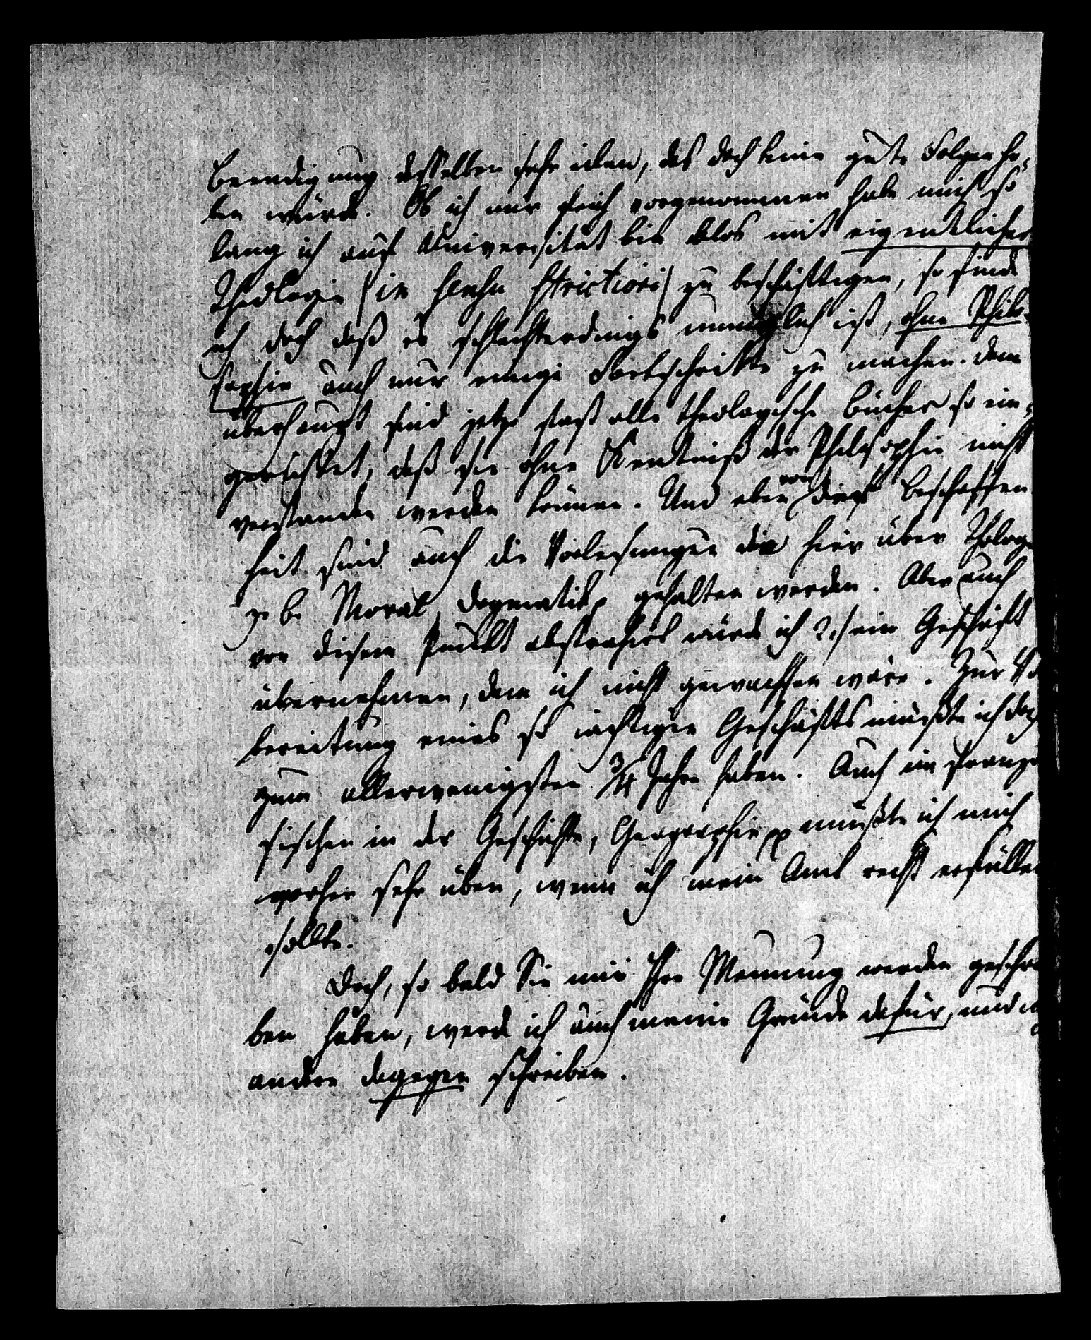 Beendigung desselben sehr eilen, das doch keine gute Folgen ha-
ben würde. Ob ich mir gleich vorgenommen habe mich so
lang ich auf Universität bin blos mit eigentlicher
Theologie (in sensu strictiori) zu beschäftigen, so finde
ich doch daß es schlechterdings unmöglich ist, ohne Philo-
sophie auch nur einige Fortschritte zu machen. Denn
überhaupt sind jetzt fast alle theologische Bücher so ein-
gerichtet, daß sie ohne Kentniß der Philosophie nicht
verstanden werden können. Und eben von dieser Beschaffen
heit sind auch die Vorlesungen die hier über Theologie
z. b. Moral, Dogmatik, gehalten werden. Aber auch
von diesem Punkt abstrahirt würde ich 2.) ein Geschäft
übernehmen, dem ich nicht gewachsen wäre. Zur Vor
bereitung eines so wichtigen Geschäfts müßte ich doch
zum allerwenigsten 3/4 Jahre haben. Auch im Franzö
sischen in der Geschichte, Geographie pp müßte ich mich
vorher sehr üben, wenn ich mein Amt recht erfüllen
sollte.
Doch, so bald Sie mir Ihre Meinung werden geschrie
ben haben, werde ich auch meine Gründe dafür, und
andere dagegen schreiben.